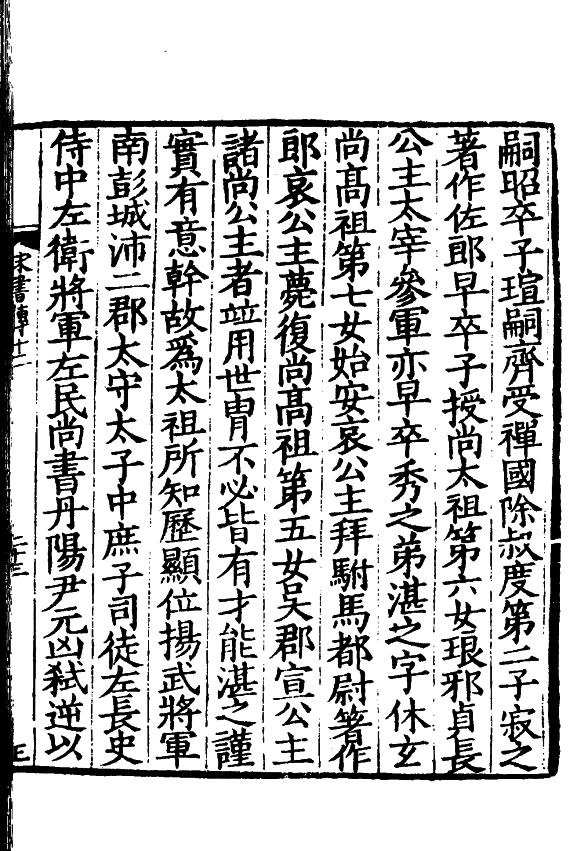 嗣昭卒子瑄嗣齊受禪國除叔度第二子寂之
著作佐郎早卒子授尚太祖第六女琅邪貞長
公主太宰參軍亦早卒秀之弟湛之字休玄
尚高祖第七女始安哀公主拜駙馬都尉著作
郎哀公主薨復尚高祖第五女吳郡宣公主
諸尚公主者並用世胄不必皆有才能湛之謹
實有意幹故爲太祖所知歷顯位揚武將軍
南彭城沛二郡太守太子中庶子司徒左長史
侍中左衛將軍左民尚書丹陽尹元凶弒逆以
宋書傳十二
二十三